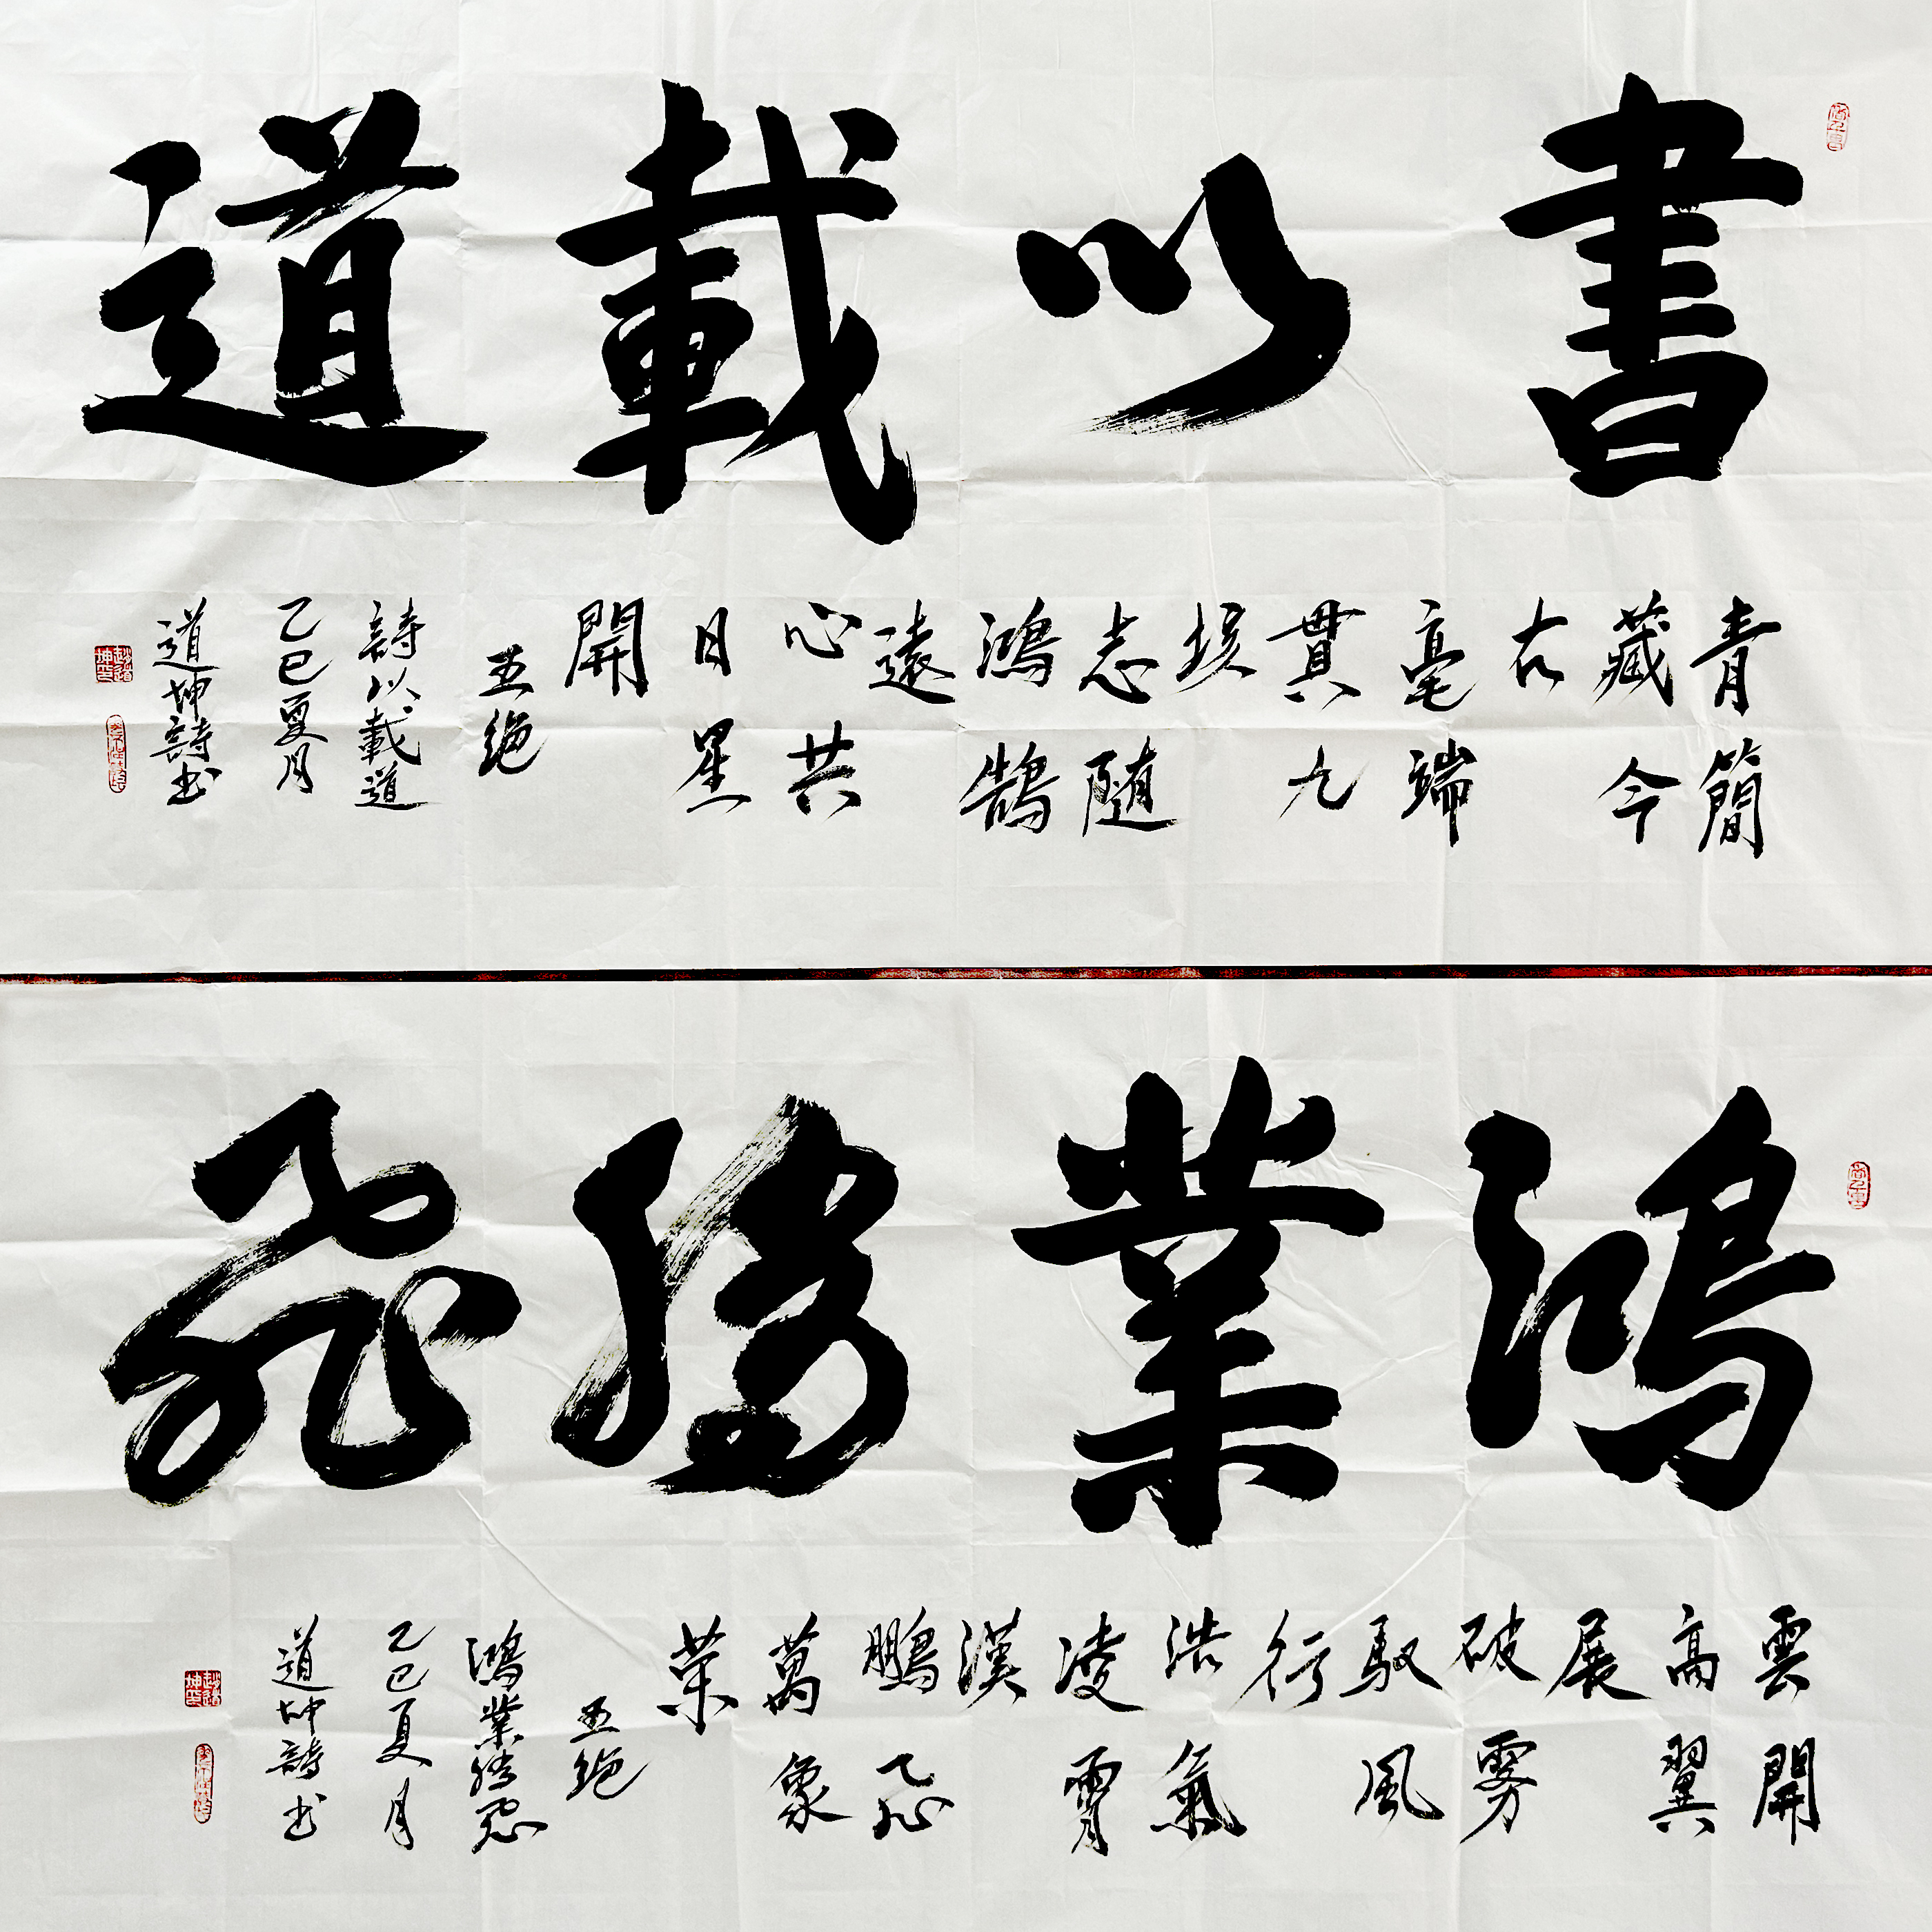 書以載道
青簡
藏今
古
毫端
貫九
垓
志随
鴻鵠
遠
心共
日星
開
五绝
詩以載道
乙巳夏月
道坤詩书
趙道坤印
鴻業騰飛
雲開
高翼
展
破雾
驭風
行
浩氣
凌霄
漢
鵬飛
萬象
榮
五绝
鴻業騰飛
乙巳夏月
道坤詩书
趙道坤印